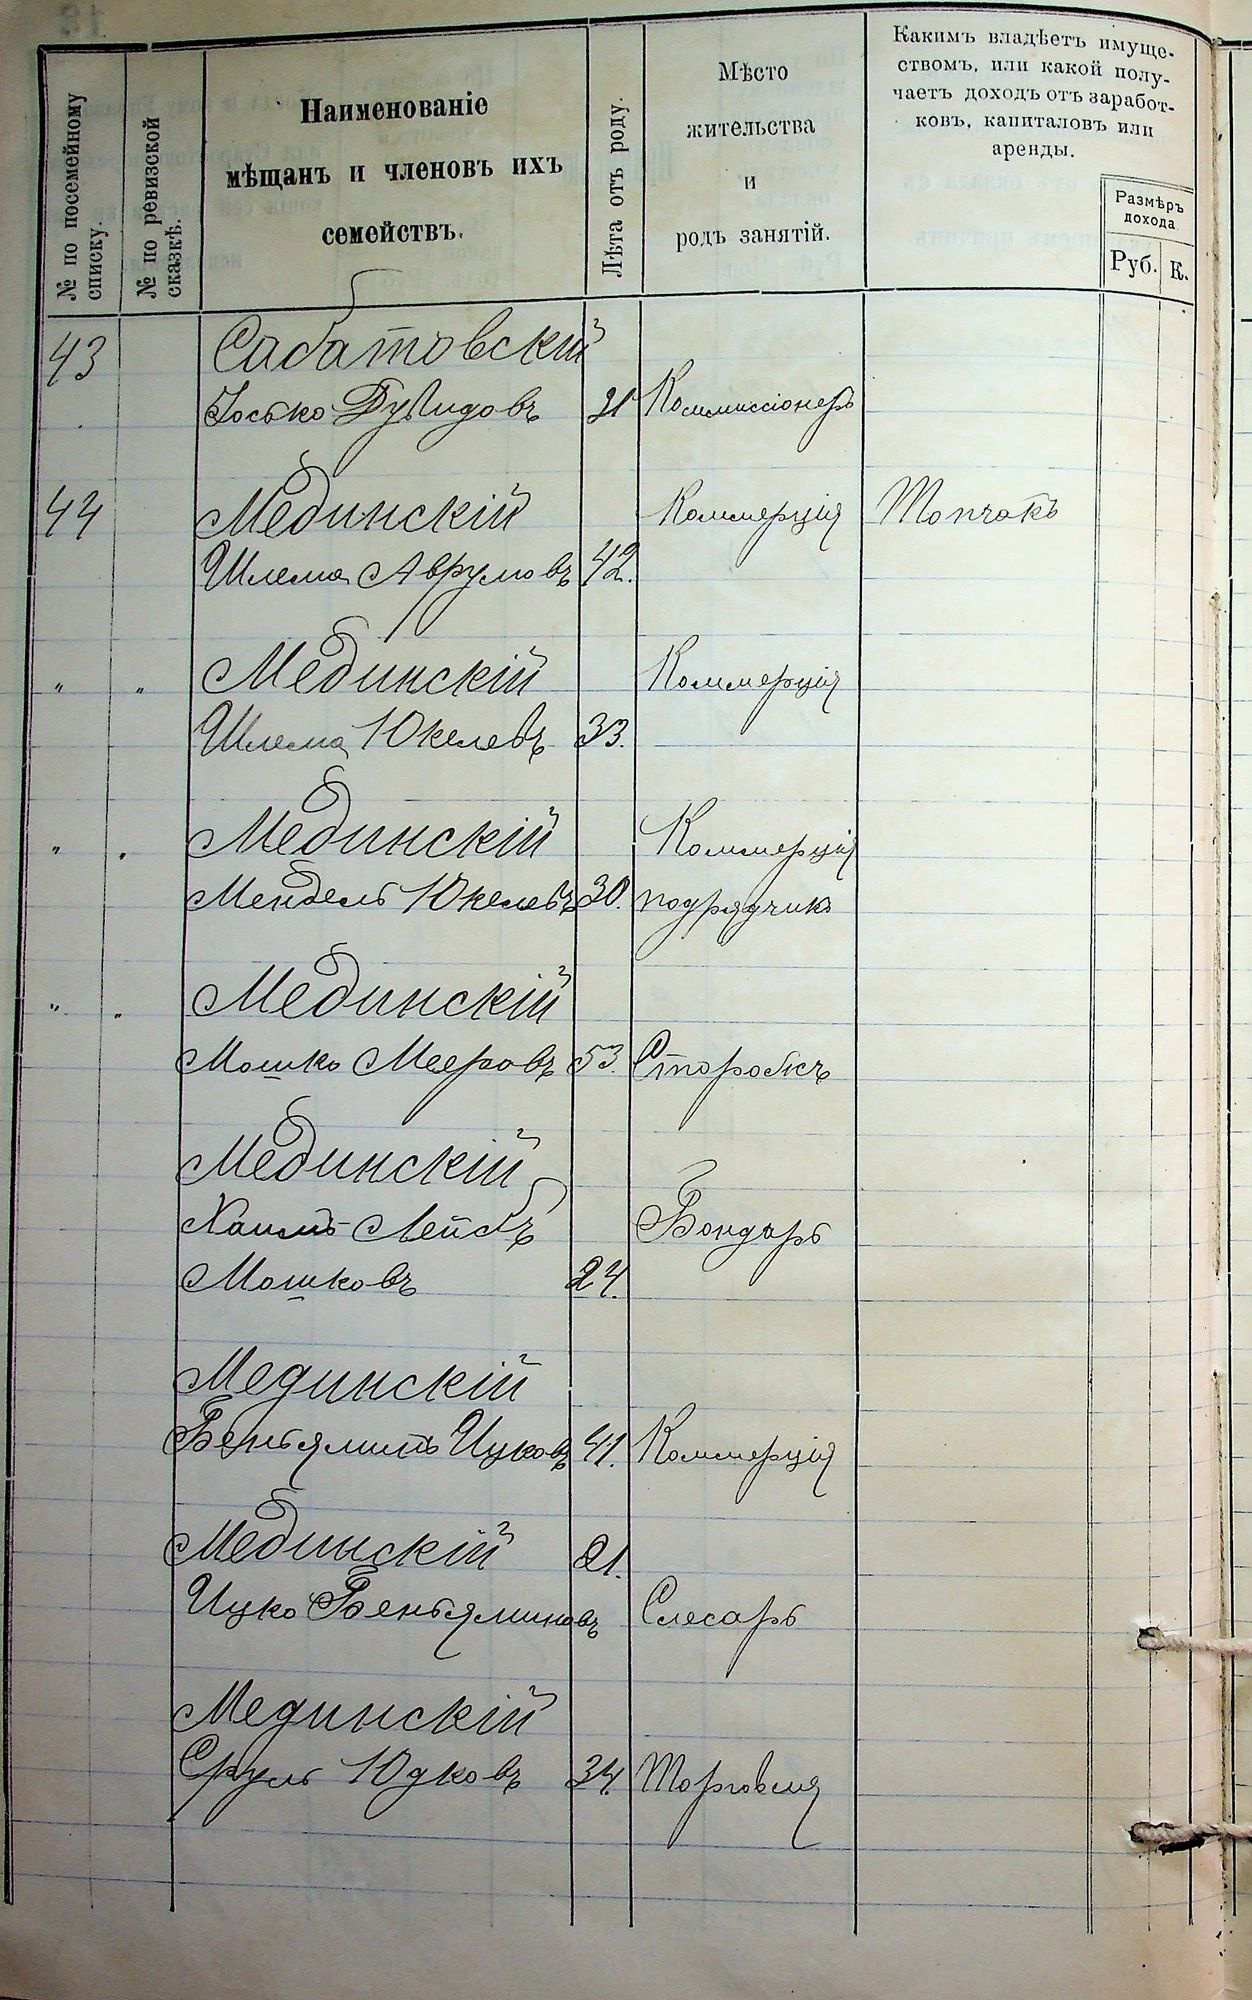 № по посемейному
списку.
№ по ревизской
сказкѣ.
Наименованіе
мѣщанъ и членовъ ихъ
семействъ.
Лѣта отъ роду.
Мѣсто
жительства
и
родъ занятій.
Какимъ владѣетъ имуще-
ствомъ, или какой полу-
чаетъ доходъ отъ заработ-
ковъ, капиталовъ или
аренды.
Размѣръ
дохода
Руб. К.
43 Сабатовскій
Іосько Дувидовъ 21 Коммиссіонеръ
44 Мединскій Коммерція Топчакъ
Шлема Аврумовъ 42.
" " Мединскій Коммерція
Шлема Юкелевъ 33.
" " Мединскій Коммерція
Мендель Юкелевъ 30. подрядчикъ
" " Мединскій
Мошко Мееровъ 53.
Мединскій
Хаимъ-Лейбъ Бондарь
Мошковъ 24.
Мединскій
Беньяминъ Ицковъ 41. Коммерція
Мединскій 21.
Ицко Беньяминовъ Слесарь
Мединскій
Сруль Юдковъ 34. Торговля